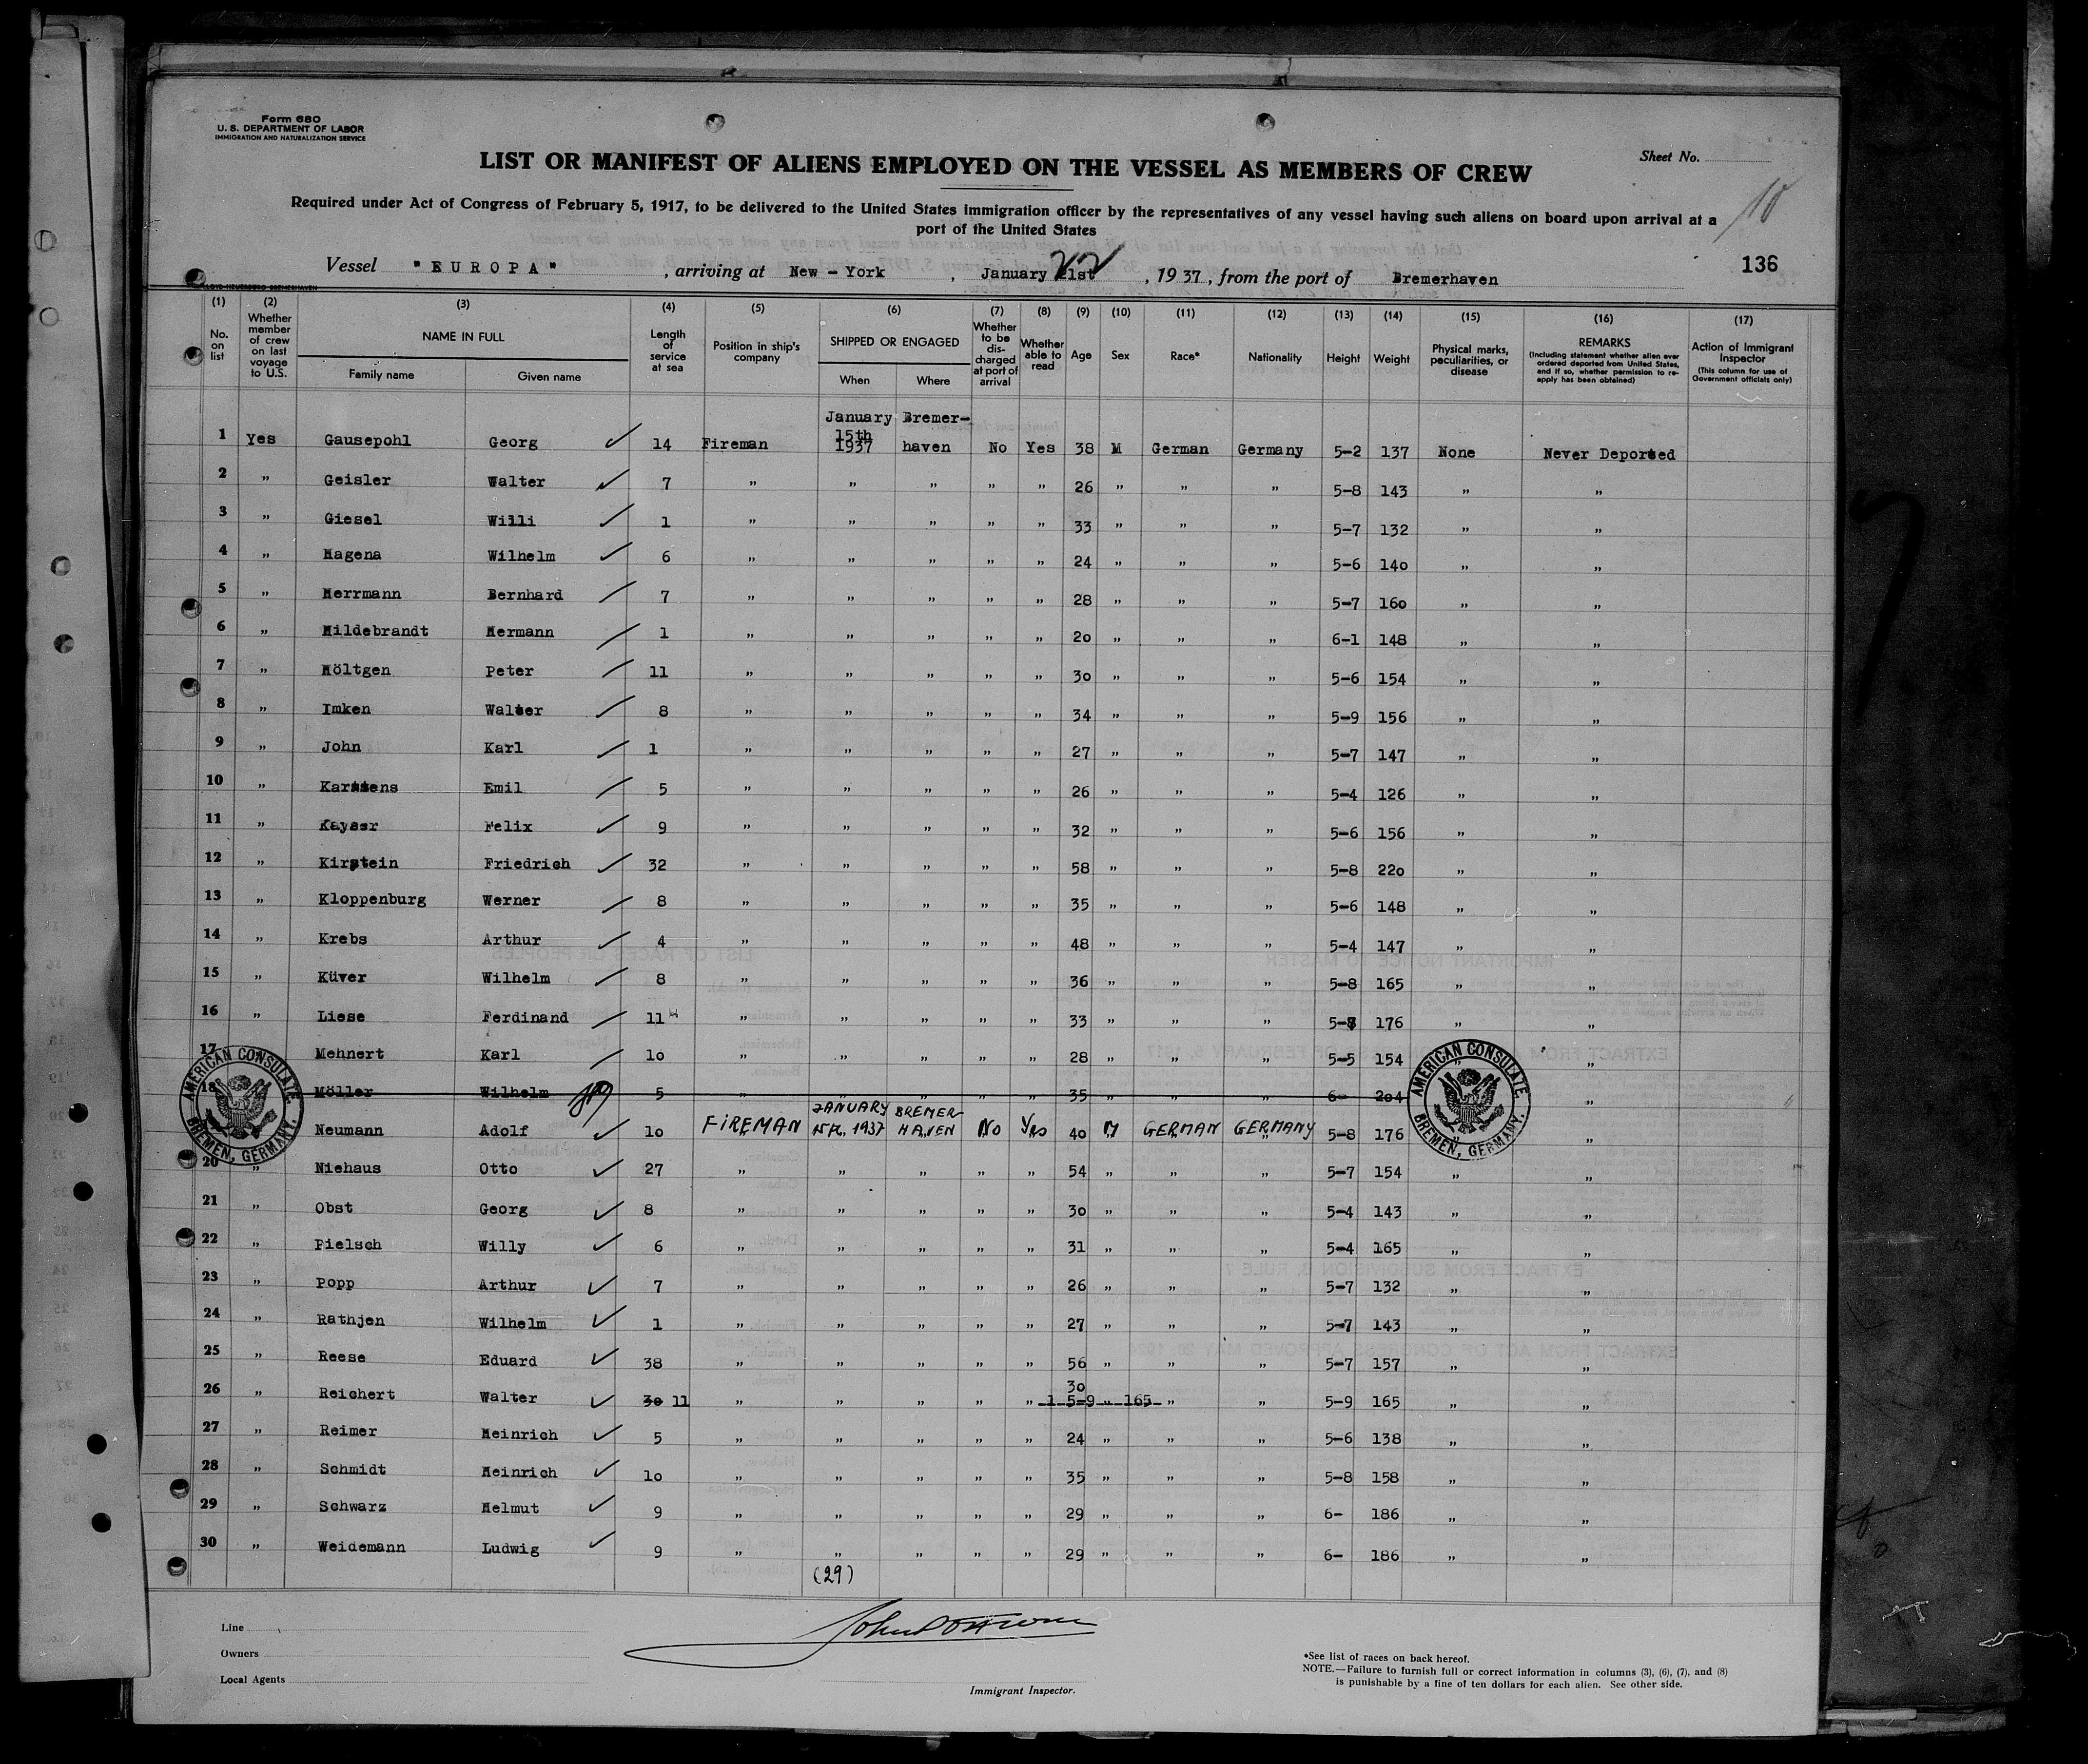 Form 680
U. S. DEPARTMENT OF LABOR
IMMIGRATION AND NATURALIZATION SERVICE
Sheet No.
LIST OR MANIFEST OF ALIENS EMPLOYED ON THE VESSEL AS MEMBERS OF CREW
10
Required under Act of Congress of February 5, 1917, to be delivered to the United States immigration officer by the representatives of any vessel having such aliens on board upon arrival at a
port of the United States
136
Vessel "EUROPA", arriving at New-York, January 21st 22, 1937, from the port of Bremerhaven
(1) No. on list
(2) Whether member of crew on last voyage to U.S.
(3) NAME IN FULL
Family name Given name
(4) Length of service at sea
(5) Position in ship's company
(6) SHIPPED OR ENGAGED
When Where
(7) Whether to be discharged at port of arrival
(8) Whether able to read
(9) Age
(10) Sex
(11) Race*
(12) Nationality
(13) Height
(14) Weight
(15) Physical marks, peculiarities, or disease
(16) REMARKS
(Including statement whether alien ever ordered deported from United States, and if so, whether permission to re-apply has been obtained)
(17) Action of Immigrant Inspector
(This column for use of Government officials only)
1 Yes Gausepohl Georg 14 Fireman January 15th 1937 Bremer-haven No Yes 38 M German Germany 5-2 137 None Never Deported
2 " Geisler Walter 7 " " " " " 26 " " " 5-8 143 " "
3 " Giesel Willi 1 " " " " " 33 " " " 5-7 132 " "
4 " Hagena Wilhelm 6 " " " " " 24 " " " 5-6 140 " "
5 " Herrmann Bernhard 7 " " " " " 28 " " " 5-7 160 " "
6 " Hildebrandt Hermann 1 " " " " " 20 " " " 6-1 148 " "
7 " Höltgen Peter 11 " " " " " 30 " " " 5-6 154 " "
8 " Imken Walter 8 " " " " " 34 " " " 5-9 156 " "
9 " John Karl 1 " " " " " 27 " " " 5-7 147 " "
10 " Karstens Emil 5 " " " " " 26 " " " 5-4 126 " "
11 " Kayser Felix 9 " " " " " 32 " " " 5-6 156 " "
12 " Kirstein Friedrich 32 " " " " " 58 " " " 5-8 220 " "
13 " Kloppenburg Werner 8 " " " " " 35 " " " 5-6 148 " "
14 " Krebs Arthur 4 " " " " " 48 " " " 5-4 147 " "
15 " Küver Wilhelm 8 " " " " " 36 " " " 5-8 165 " "
16 " Liese Ferdinand 11 " " " " " 33 " " " 176 " "
17 " Mehnert Karl 10 " " " " " 28 " " " 5-5 154 " "
18 Möller Wilhelm 5 " " " " " 35 " " " 6- 204 "
Neumann Adolf 10 FIREMAN JANUARY 15th, 1937 BREMER-HAVEN No Yes 40 M GERMAN GERMANY 5-8 176 " "
20 " Niehaus Otto 27 " " " " " 54 " " " 5-7 154 " "
21 " Obst Georg 8 " " " " " 30 " " " 5-4 143 " "
22 " Pielsch Willy 6 " " " " " 31 " " " 5-4 165 " "
23 " Popp Arthur 7 " " " " " 26 " " " 5-7 132 " "
24 " Rathjen Wilhelm 1 " " " " " 27 " " " 5-7 143 " "
25 " Reese Eduard 38 " " " " " 56 " " " 5-7 157 " "
26 " Reichert Walter 30 11 " " " " " 30 1 5-9 " 165 " " 5-9 165 " "
27 " Reimer Heinrich 5 " " " " " 24 " " " 5-6 138 " "
28 " Schmidt Heinrich 10 " " " " " 35 " " " 5-8 158 " "
29 " Schwarz Helmut 9 " " " " " 29 " " " 6- 186 " "
30 " Weidemann Ludwig 9 " " " " " 29 " " " 6- 186 " "
(29)
AMERICAN CONSULATE. BREMEN, GERMANY.
AMERICAN CONSULATE. BREMEN, GERMANY.
Line
Owners
Local Agents
Immigrant Inspector.
*See list of races on back hereof.
NOTE.—Failure to furnish full or correct information in columns (3), (6), (7), and (8)
is punishable by a fine of ten dollars for each alien. See other side.